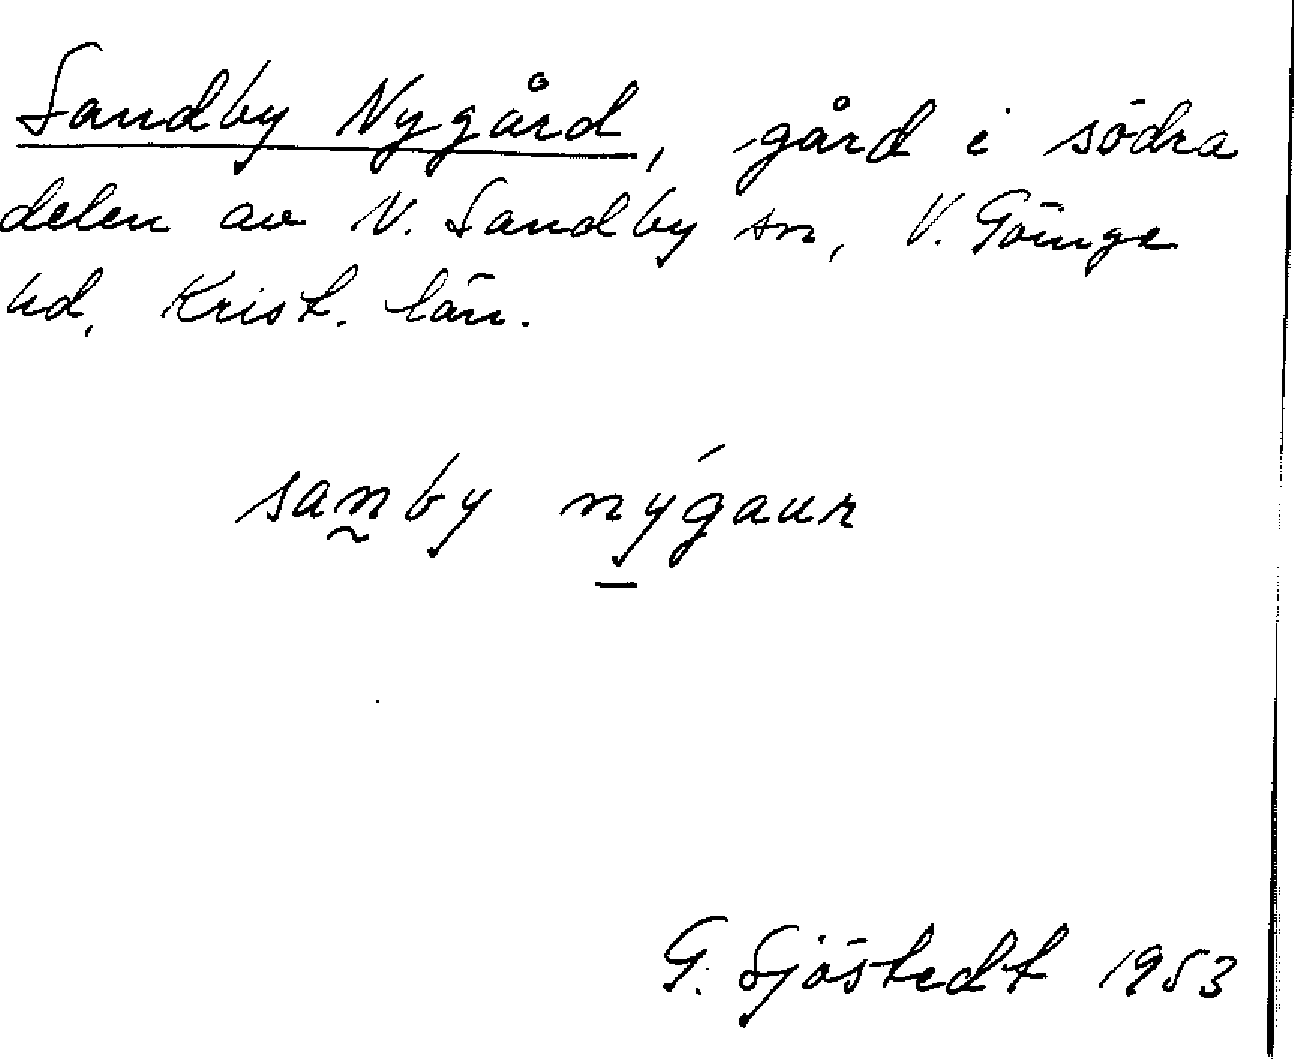 Sandby Nygård, gård i södra
delen av N. Sandby sn, V. Göinge
hd, Krist. län.
sa̰nby ný̱gaur
G. Sjöstedt 1953